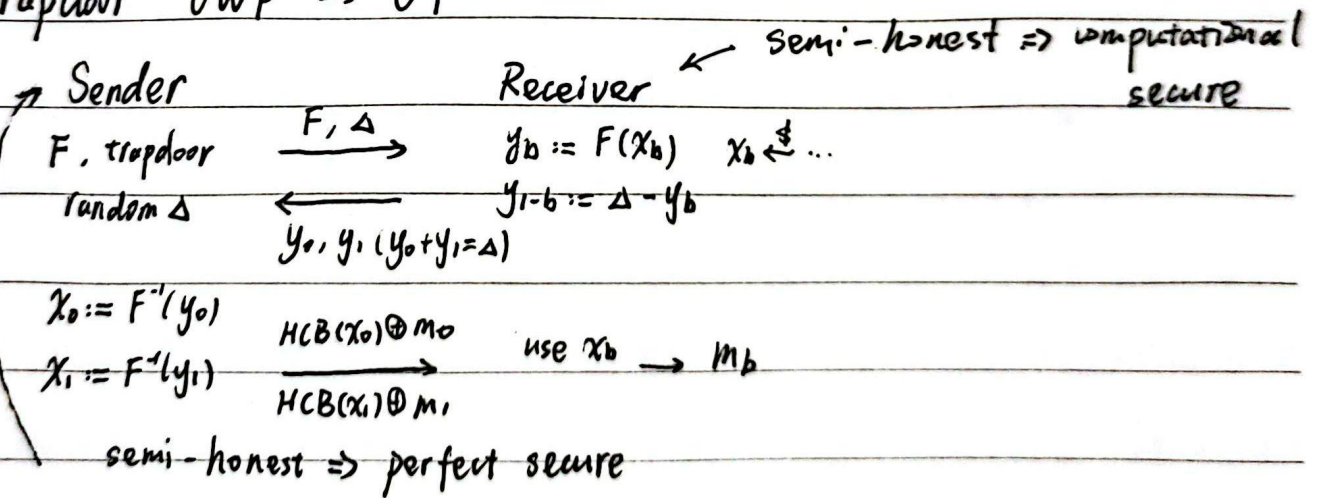 semi-honest => computational
secure
Sender Receiver
F, trapdoor F, Δ y_b := F(x_b) x_b <-$ ...
random Δ y_{1-b} := Δ - y_b
y_0, y_1 (y_0+y_1=Δ)
x_0 := F^{-1}(y_0) HCB(x_0)⊕m_0 use x_b → m_b
x_1 := F^{-1}(y_1) HCB(x_1)⊕m_1
semi-honest => perfect secure